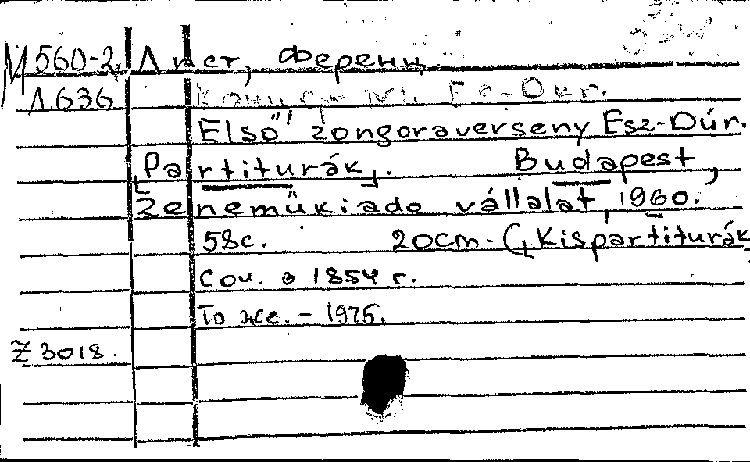 М 560-2 Лист, Ференц.
Л 636 Концерт №1 Es-Dur.
Első zongoraverseny Esz-Dúr.
[Partiturák]. Budapest,
Zeneműkiado vállalat, 1960.
58с. 20cm. ([Kispartiturák
Соч. в 1854 г.
То же. - 1975.
Z 3018.